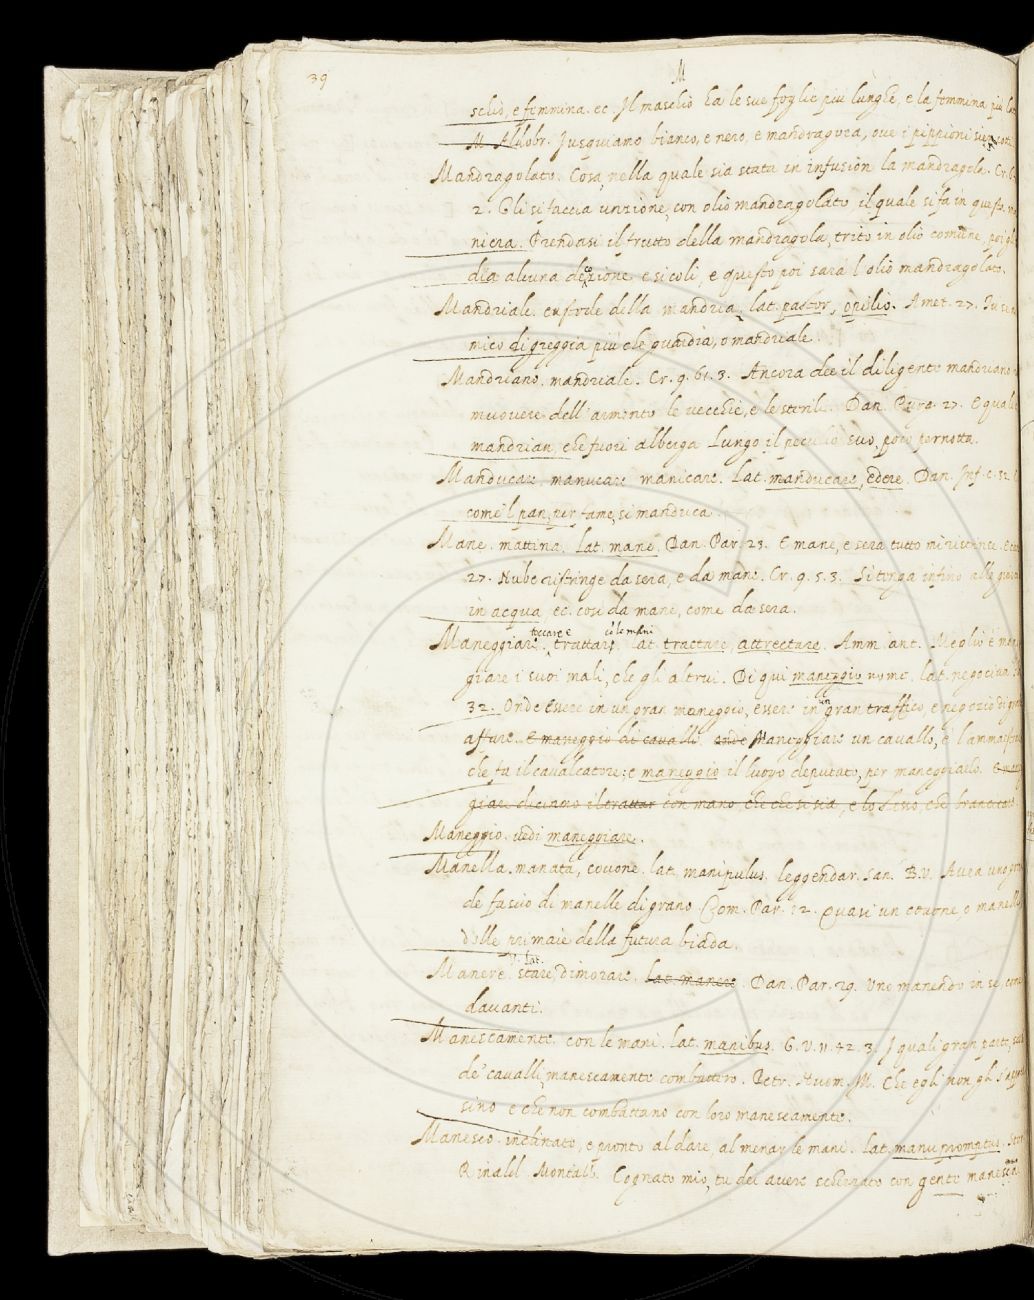 39
M
schio, e femmina. ec. Il maschio ha le sue foglie più lunghe, e la femmina più
M. Aldobr. Jusquiamo bianco, e nero, e mandragora, ove i pippioni sien
Mandragolato. Cosa, nella quale sia stata in infusion la mandragola. Cr.
2. Gli si faccia unzione, con olio mandragolato, il quale si fa in questa
niera. Prendasi il frutto della mandragola, trito in olio comune, poi
dia alcuna decozione e si coli, e questo poi sarà l olio mandragolato.
Mandriale. custode della mandria, lat. pastor, opilio. Amet. 27.
mico di greggia più che guardia, o mandriale.
Mandriano. mandriale. Cr. 9. 61. 3. Ancora dee il diligente mandriano
muovere dell'armento le vecchie, e le sterili. Dan. Purg. 27. E quale
mandrian, che fuori alberga Lungo il peculio suo, poco pernotta.
Manducare manucare manicare. Lat. manducare, edere. Dan. Inf. c. 32.
come 'l pan, per fame, si manduca.
Mane. mattina. Lat. mane. Dan. Par. 23. E mane, e sera tutto mi ristrinse
27. Nube ristringe da sera, e da mane. Cr. 9. 5. 3. Si tenga infino alle
in acqua, ec. così da mane, come da sera.
toccare e cō le mani
Maneggiare. trattare lat. tractare, attrectare. Amm. ant. Meglio è
giare i suoi mali, che gli altrui. Di qui maneggio nome. lat. negocium
32. Onde essere in un gran maneggio, essere in un gran traffico, e negozio di
affare. E maneggio di cavalli onde Maneggiare un cavallo, è l'
che fa il cavalcatore: e maneggio il luogo deputato, per maneggiarlo.
giare diciamo il trattar con mano che che si sia, e lo stesso, che brancicare
Maneggio. vedi maneggiare.
Manella. manata, covone. lat. manipulus leggendar. San. B.V. Avea
de fascio di manelle di grano. Com. Par. 12. Quasi un covone, o manella
delle primaie della futura biada.
V. Lat.
Manere. stare, dimorare. lat. manere. Dan. Par. 29. Uno manendo in se, come
davanti.
Manescamente. con le mani. lat. manibus. G. V. 11. 42. 3. I quali gran parte
de' cavalli, manescamente combattero. Petr. Huom. Ill. Che egli non gli
sino e che non combattano con loro manescamente.
Manesco. inclinato, e pronto al dare, al menar le mani. lat. manu promptus.
Rinald. Montalb. Cognato mio, tu dei avere scherzato con gente manesca